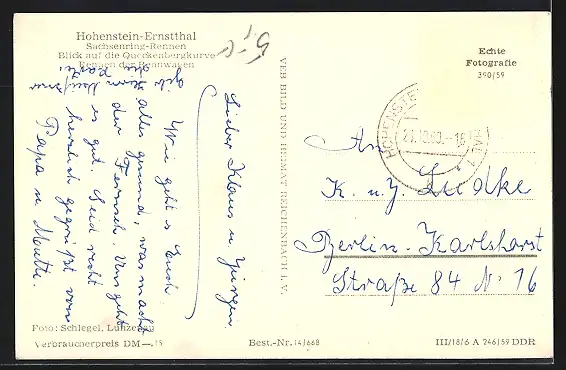 Hohenstein-Ernstthal
Sachsenring-Rennen
Blick auf die Queckenbergkurve
Rennen der Rennwagen
Echte
Fotografie
390/59
HOHENSTE
-16
An
K. u. J. Lüdke
Berlin-Karlshorst
Straße 84 N. 16
VEB BILD UND HEIMAT REICHENBACH I.V.
Lieber Klaus u. Jürgen,
Wie geht's Euch
alles gesund, was macht
der Fernseh. Uns geht
es gut. Seid recht
herzlich gegrüßt von
Papa u. Mutti.
Foto: Schlegel,
Verbraucherpreis DM —.15
Best.-Nr. 14/668
III/18/6 A 246/59 DDR